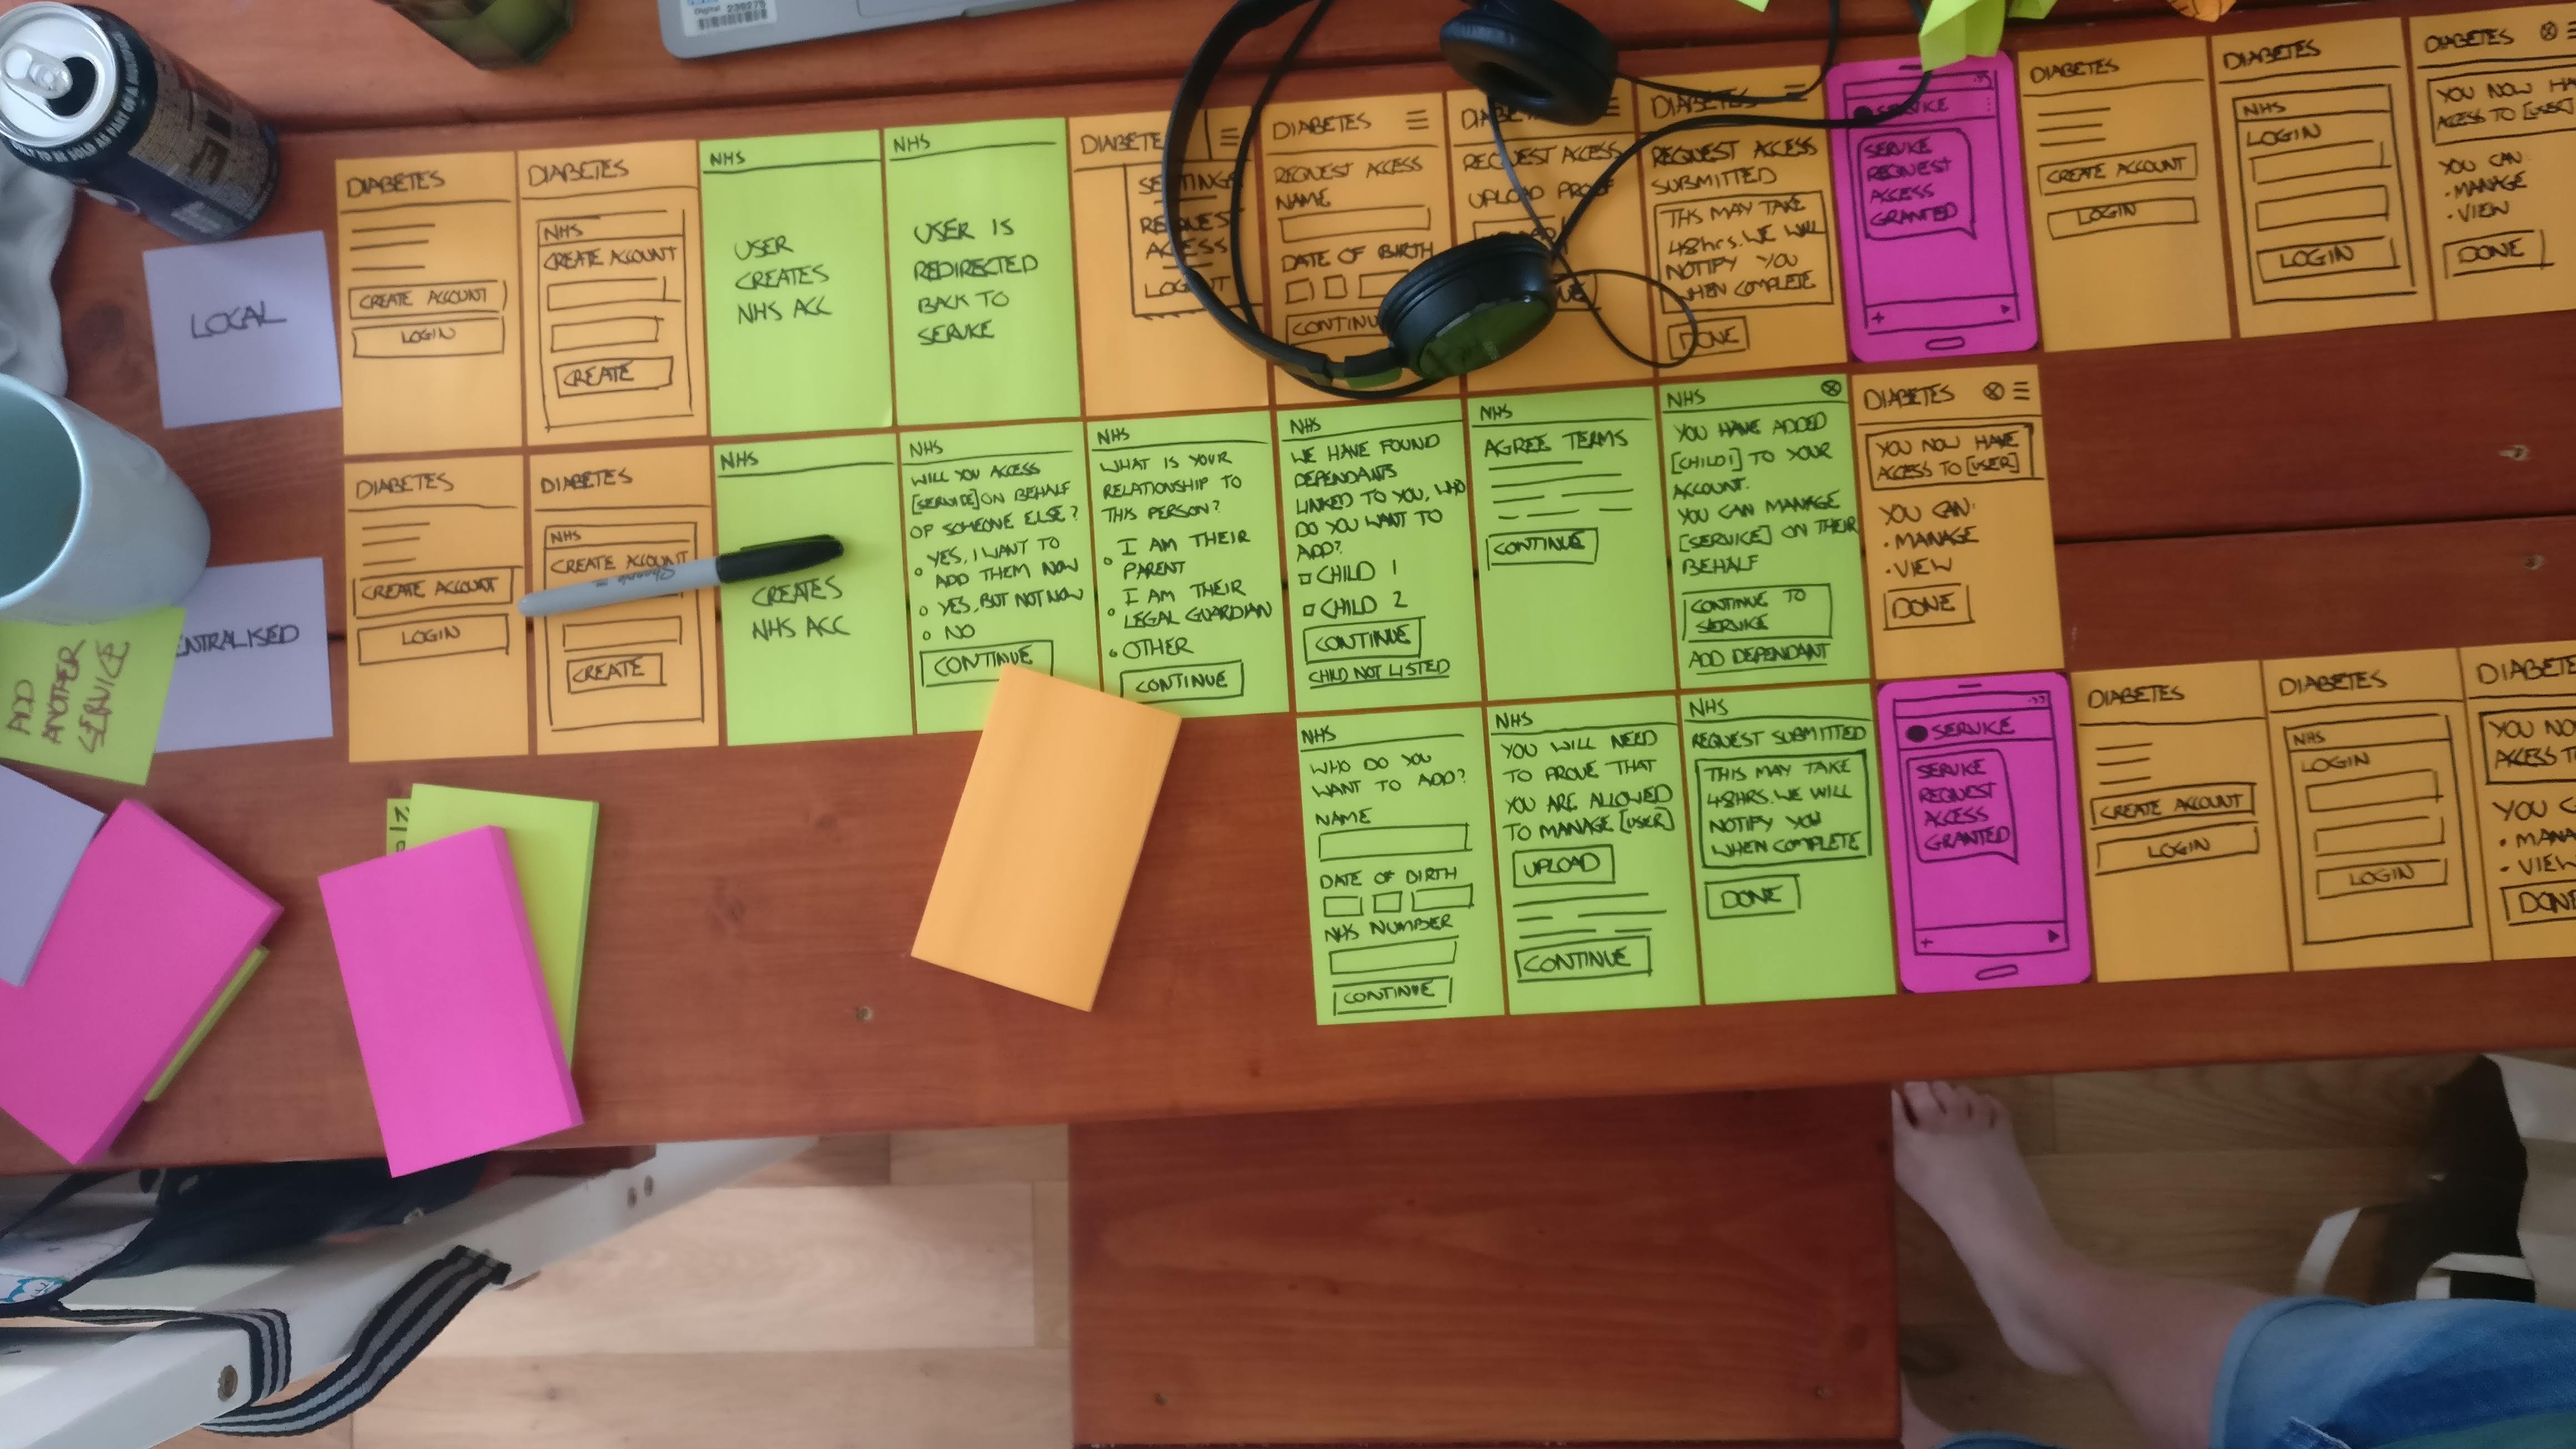 Digital 239275
ONLY TO BE SOLD AS PART OF A MULTIPACK
LOCAL
DIABETES
CREATE ACCOUNT
LOGIN
DIABETES
NHS
CREATE ACCOUNT
CREATE
NHS
USER
CREATES
NHS ACC
NHS
USER IS
REDIRECTED
BACK TO
SERVICE
DIABETE
SETTINGS
REQUEST
ACCESS
LOGOUT
DIABETES
REQUEST ACCESS
NAME
DATE OF BIRTH
CONTINU
DIABET
REQUEST ACCESS
UPLOAD PROOF
UE
DIABETES
REQUEST ACCESS
SUBMITTED
THIS MAY TAKE
48hrs. WE WILL
NOTIFY YOU
WHEN COMPLETE
DONE
SERVICE
SERVICE
REQUEST
ACCESS
GRANTED
DIABETES
CREATE ACCOUNT
LOGIN
DIABETES
NHS
LOGIN
LOGIN
DIABETES
YOU NOW HA
ACCESS TO [USER]
YOU CAN
• MANAGE
• VIEW
DONE
ENTRALISED
ADD
ANOTHER
SERVICE
DIABETES
CREATE ACCOUNT
LOGIN
DIABETES
NHS
CREATE ACCOUNT
CREATE
Sharpie
NHS
CREATES
NHS ACC
NHS
WILL YOU ACCESS
[SERVICE] ON BEHALF
OF SOMEONE ELSE?
YES, I WANT TO
ADD THEM NOW
YES, BUT NOT NOW
NO
CONTINUE
NHS
WHAT IS YOUR
RELATIONSHIP TO
THIS PERSON?
I AM THEIR
PARENT
I AM THEIR
LEGAL GUARDIAN
OTHER
CONTINUE
NHS
WE HAVE FOUND
DEPENDANTS
LINKED TO YOU, WHO
DO YOU WANT TO
ADD?
CHILD 1
CHILD 2
CONTINUE
CHILD NOT LISTED
NHS
AGREE TERMS
CONTINUE
NHS
YOU HAVE ADDED
[CHILD1] TO YOUR
ACCOUNT.
YOU CAN MANAGE
[SERVICE] ON THEIR
BEHALF
CONTINUE TO
SERVICE
ADD DEPENDANT
DIABETES
YOU NOW HAVE
ACCESS TO [USER]
YOU CAN:
• MANAGE
• VIEW
DONE
NHS
WHO DO YOU
WANT TO ADD?
NAME
DATE OF BIRTH
NHS NUMBER
CONTINUE
NHS
YOU WILL NEED
TO PROVE THAT
YOU ARE ALLOWED
TO MANAGE [USER]
UPLOAD
CONTINUE
NHS
REQUEST SUBMITTED
THIS MAY TAKE
48HRS. WE WILL
NOTIFY YOU
WHEN COMPLETE
DONE
SERVICE
SERVICE
REQUEST
ACCESS
GRANTED
DIABETES
CREATE ACCOUNT
LOGIN
DIABETES
NHS
LOGIN
LOGIN
DIABETE
YOU NO
ACCESS T
YOU C
• MANA
• VIEW
DON